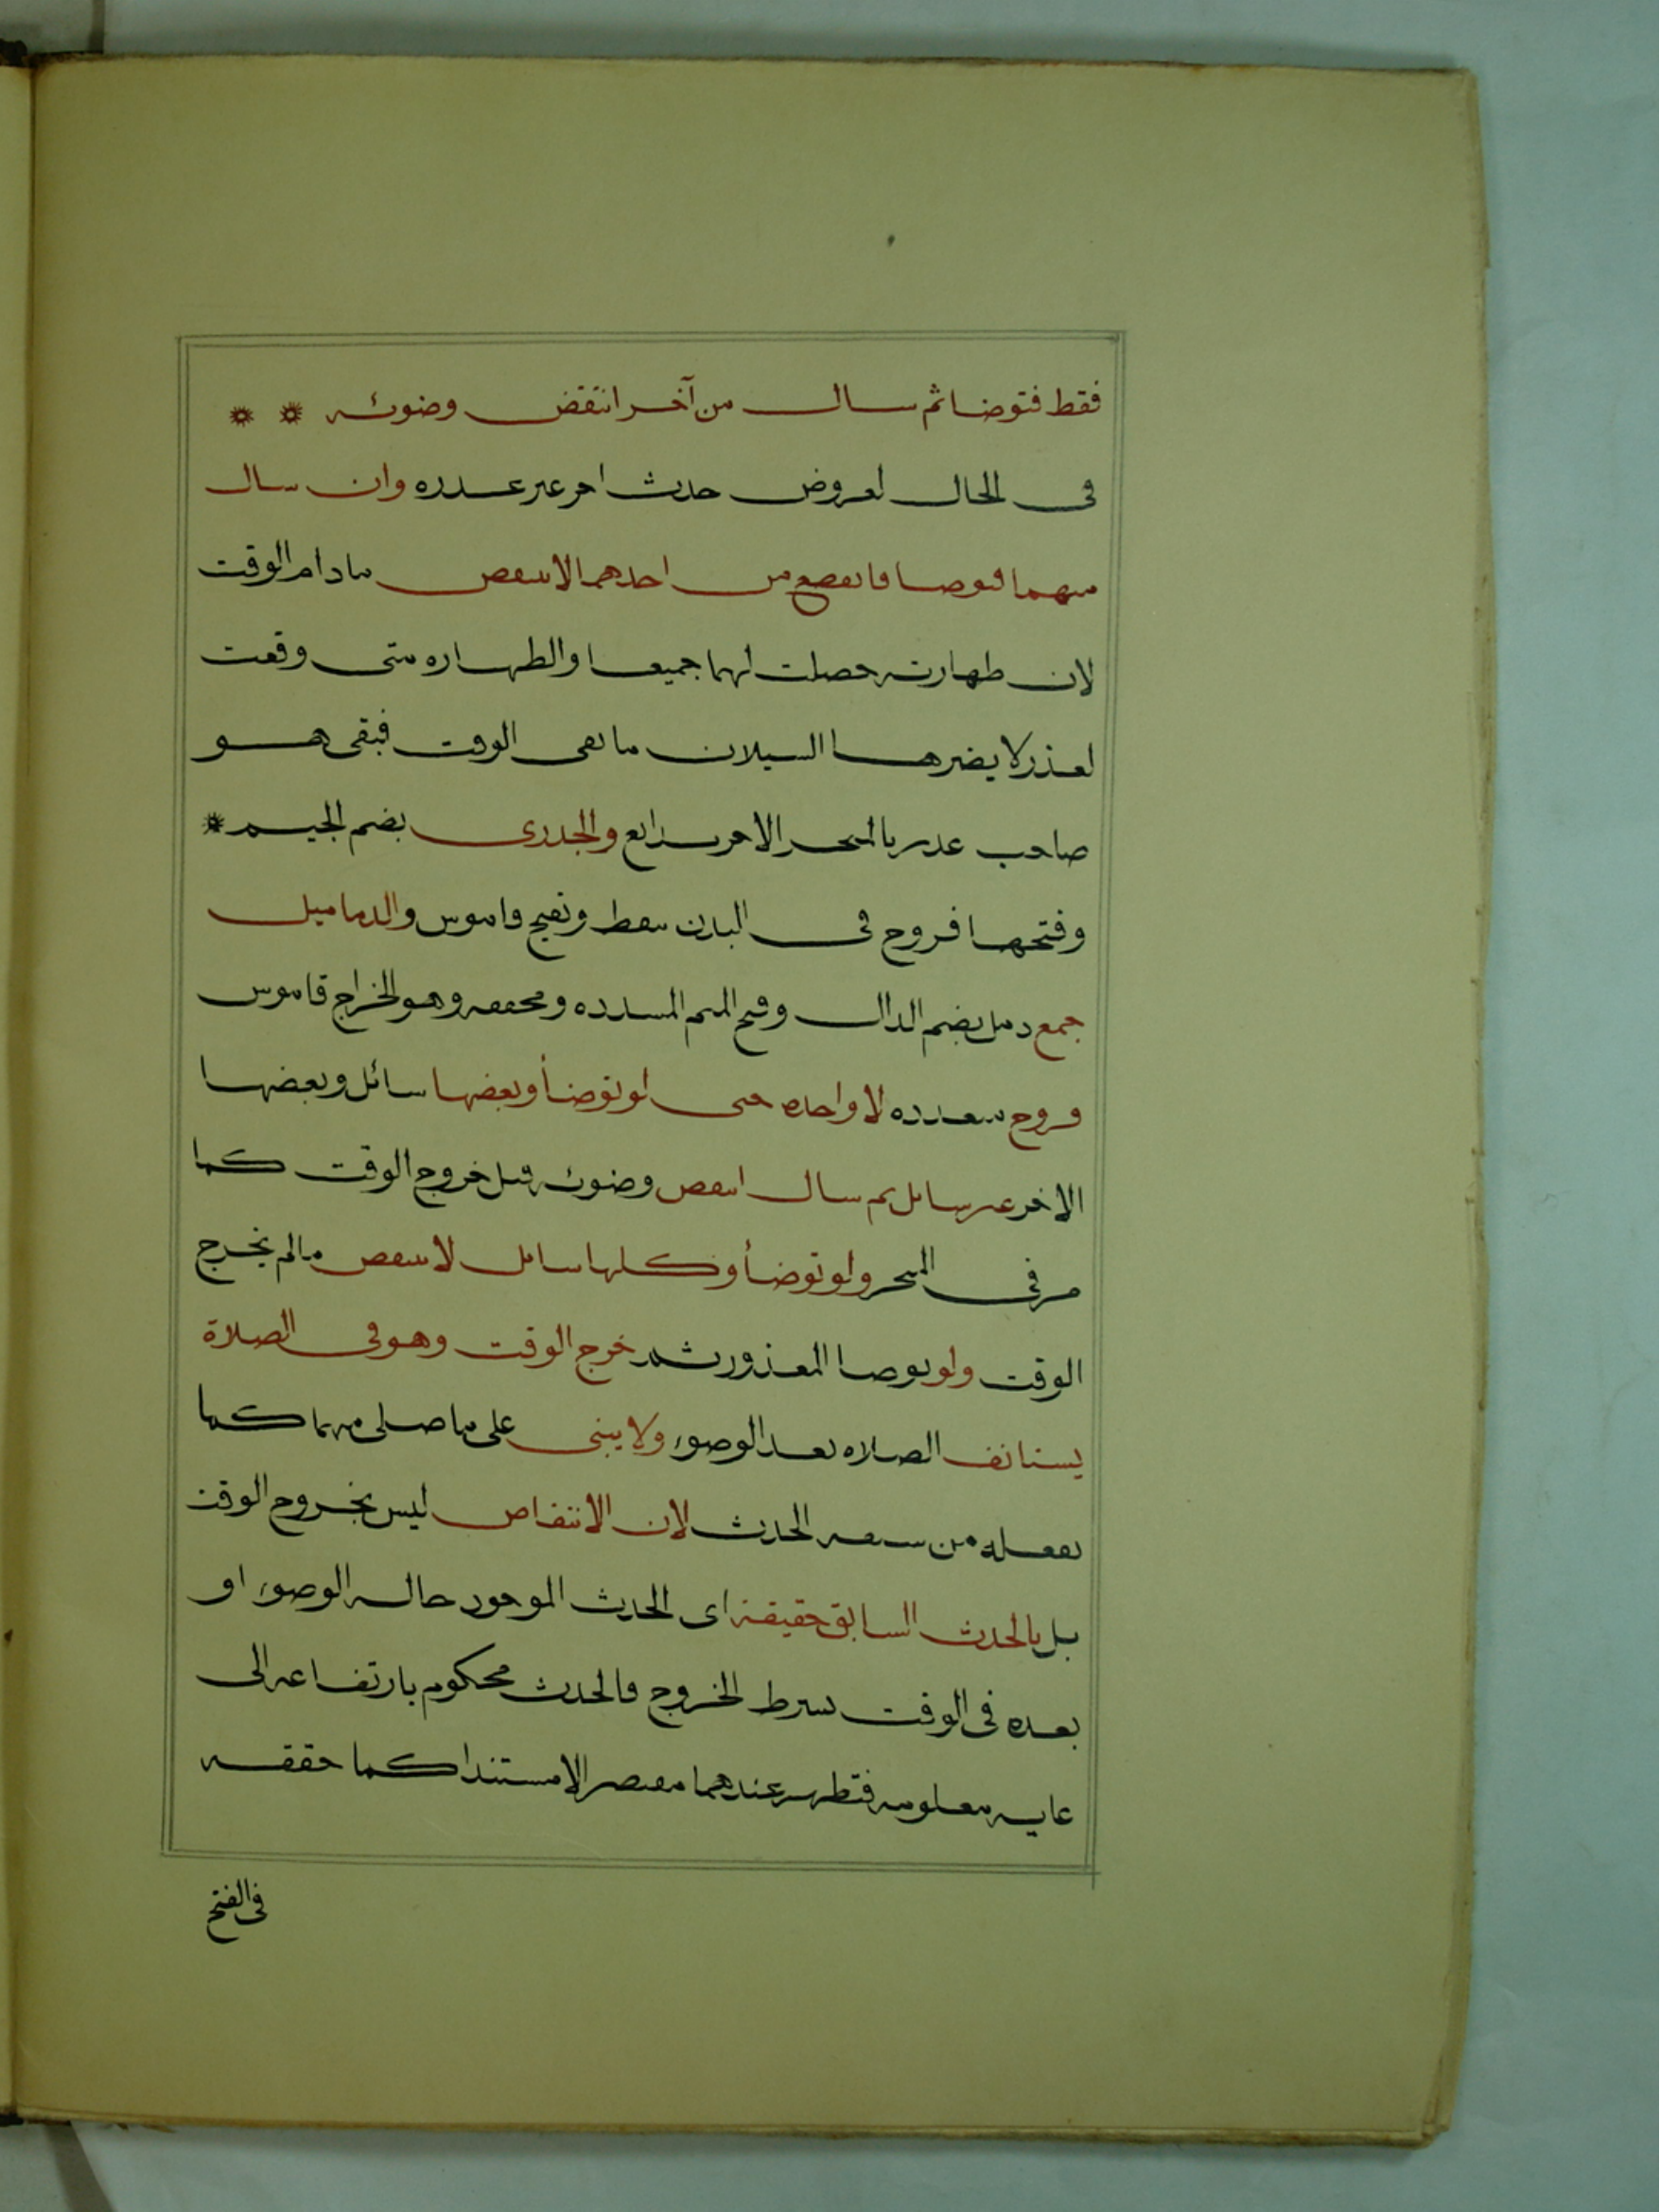 فقط فتوضا ثم سال من آخر انتقض وضوئه
فى الحال لعروض حدث اخر غير عذره وان سال
منهما فتوضا فانقطع من احدهما لا ينتقض مادام الوقت
لان طهارته حصلت لهما جميعا والطهاره متى وقعت
لعذر لا يضرها السيلان ما بقى الوقت فبقى هو
صاحب عذر بالمنخر الاخر بدايع والجدرى بضم الجيم
وفتحها قروح فى البدن تنفط وتقيح قاموس والدماميل
جمع دمل بضم الدال وفتح الميم المشدده ومخففه وهو الخراج قاموس
قروح متعدده لا واحده حتى لو توضأ وبعضها سائل وبعضها
الاخر غير سايل ثم سال انتقض وضوئه قبل خروج الوقت كما
مر فى المنخر ولو توضأ وكلها سايل لا ينتقض مالم يخرج
الوقت ولو توضا المعذور ثم خرج الوقت وهو فى الصلاة
يستانف الصلاه بعد الوضوء ولا يبنى على ما صلى منها كما
يفعله من سبقه الحدث لان الانتقاض ليس بخروج الوقت
بل بالحدث السابق حقيقة اى الحدث الموجود حاله الوضوء او
بعده فى الوقت بشرط الخروج فالحدث محكوم بارتفاعه الى
غايه معلومه فتظهر عندهما مقتصرا لا مستندا كما حققه
فى الفتح